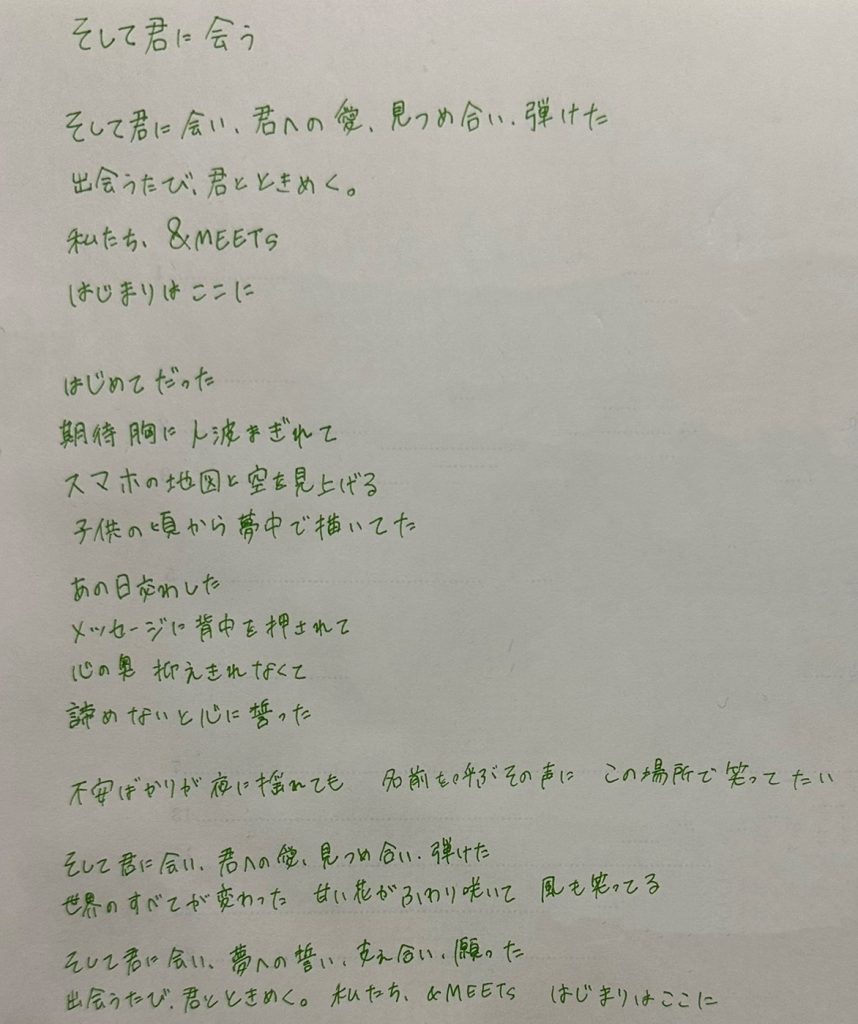 そして君に会う
そして君に会い、君への愛、見つめ合い、弾けた
出会うたび、君とときめく。
私たち、&MEETs
はじまりはここに
はじめてだった
期待胸に人波まぎれて
スマホの地図と空を見上げる
子供の頃から夢中で描いてた
あの日交わした
メッセージに背中を押されて
心の奥 抑えきれなくて
諦めないと心に誓った
不安ばかりが夜に揺れても 名前を呼ぶその声に この場所で笑ってたい
そして君に会い、君への愛、見つめ合い、弾けた
世界のすべてが変わった 甘い花がふわり咲いて 風も笑ってる
そして君に会い、夢への誓い、支え合い、願った
出会うたび、君とときめく。 私たち、&MEETs はじまりはここに